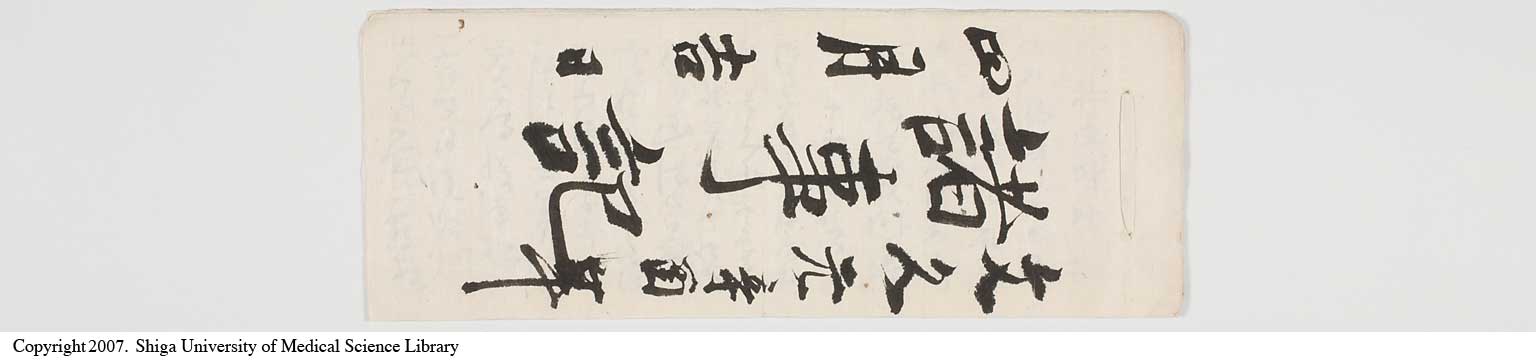 文久元辛酉年
諸事記
四月吉日
Copyright 2007. Shiga University of Medical Science Library